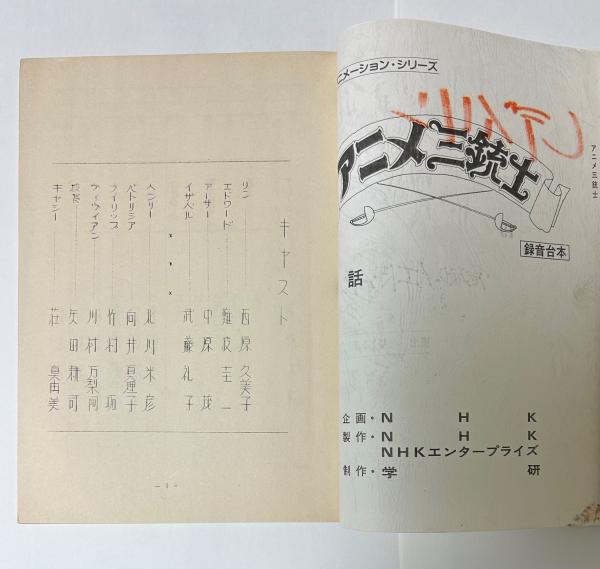 ニメーション・シリーズ
アニメ三銃士
録音台本
話
企画・NHK
製作・NHK
NHKエンタープライズ
制作・学研
アニメ三銃士
キャスト
リン 西原久美子
エドワード 難波圭一
アーサー 中原茂
イザベル 武藤礼子
×××
ヘンリー 北川米彦
パトリシア 向井真理子
フィリップ 竹村拓
ヴィヴィアン 川村万梨阿
矢田耕司
キャシー 荘真由美
-1-